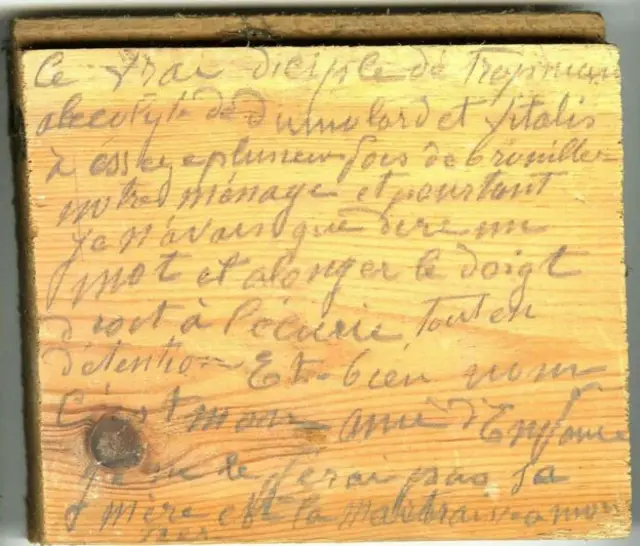 Ce vrai diciple de Tropmann
accolyte de Dumolard et Vitalis
à essaye plusieur fois de brouiller
notre ménage et pourtant
je n'avais que dire un
mot et alonger le doigt
droit à l'écurie tout en
détention Et-bien nom
C'est mon ami d'Enfance
je ne le ferai pas sa
mère est la maitraisse a mon